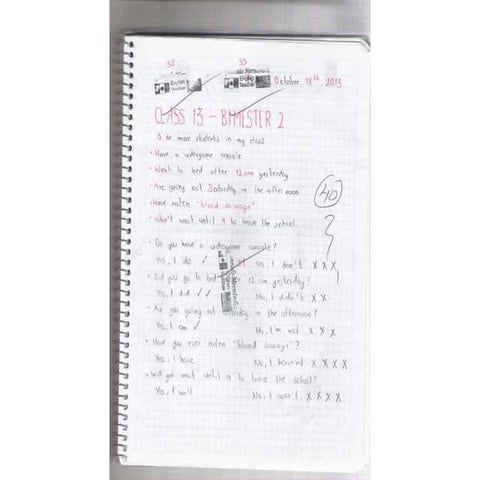 32 33
English Teacher English Teacher October 18th, 2013
CLASS 13 - BIMESTER 2
3 or more students in my class
• Have a videogame console
• Went to bed after 12 am yesterday
• Are going out Saturday in the afternoon
• Have eaten "blood sausage"
• Won't wait until 9 to leave the school.
40
• Do you have a videogame console?
Yes, I do ✓ No, I don't x x x
• Did you go to bed after 12 am yesterday?
Yes, I did ✓ ✓ No, I didn't x x
• Are you going out Saturday in the afternoon?
Yes, I am ✓ No, I'm not x x x
• Have you ever eaten "blood sausage"?
Yes, I have No, I haven't x x x x
• Will you wait until 9 to leave the school?
Yes, I will No, I won't x x x x